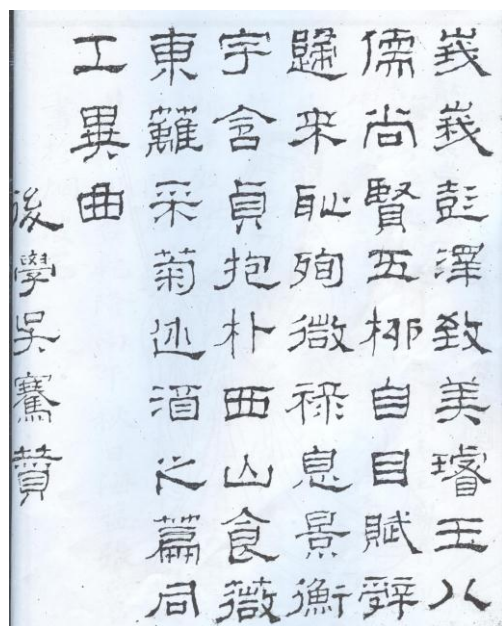 峩峩彭澤致美璿玉八
儒尚賢五桺自目賦辤
歸来恥殉微禄息景衡
宇含貞抱朴西山食薇
東蘺采菊述酒之篇同
工異曲
後學吴騫贊